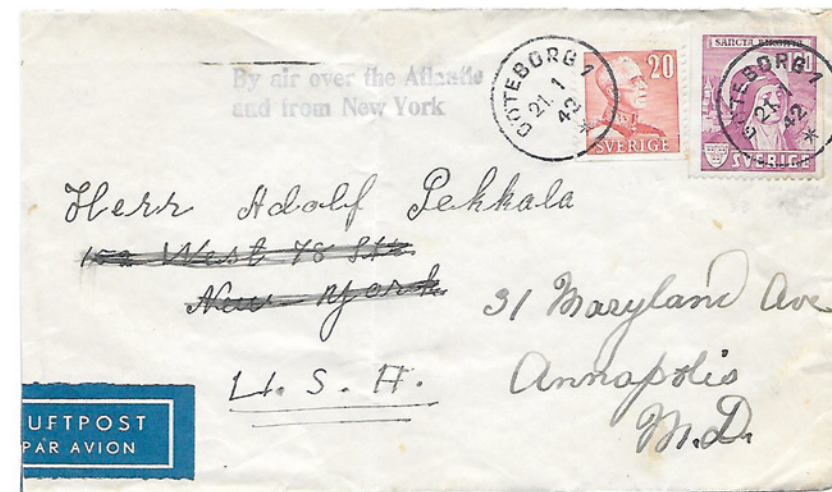 By air over the Atlantic
and from New York
GÖTEBORG 1
21. 1
42
20
SVERIGE
SANCTA BIRGITTA
GÖTEBORG 1
21. 1
42
SVERIGE
Herr Adolf Pekkala
West 78 Str.
New York
U. S. A.
31 Maryland Ave
Annapolis
M.D.
LUFTPOST
PAR AVION